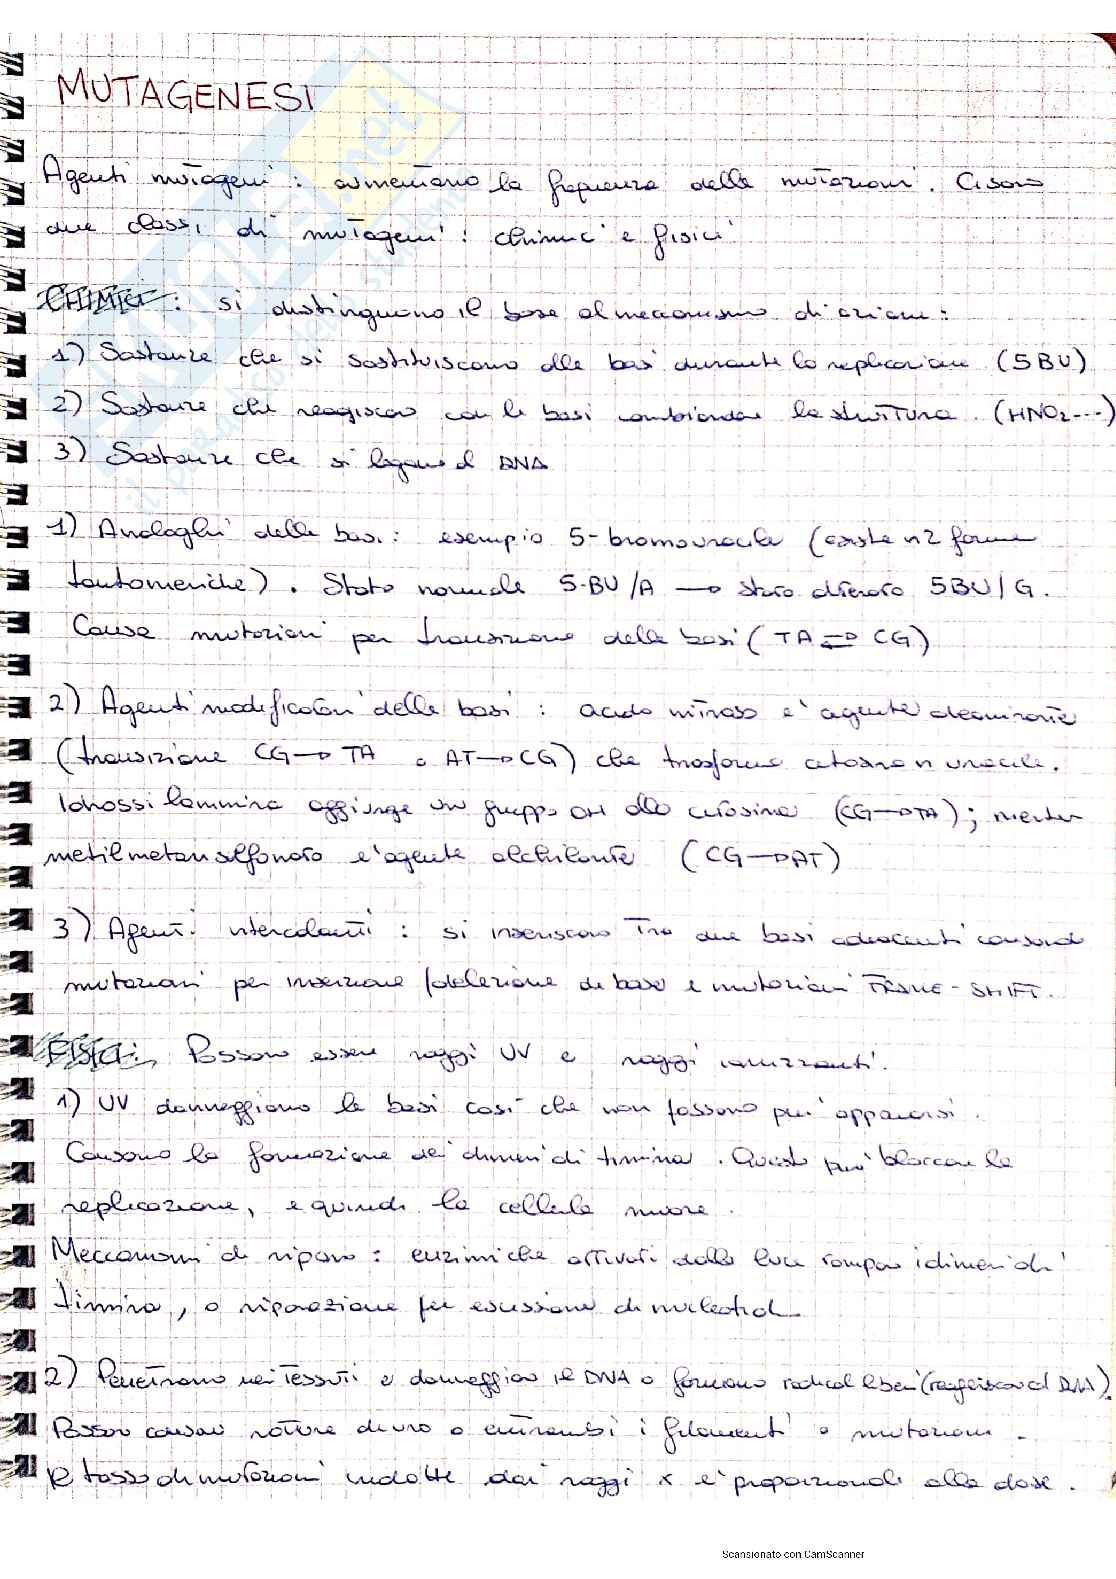 MUTAGENESI
Agenti mutageni : aumentano la frequenza delle mutazioni. Ci sono
due classi di mutageni : chimici e fisici
CHIMICI : si distinguono il base al meccanismo di azione :
1) Sostanze che si sostituiscono alle basi durante la replicazione (5BU)
2) Sostanze che reagiscono con le basi cambiandone la struttura. (HNO2---)
3) Sostanze che si legano al DNA
1) Analoghi delle basi : esempio 5-bromouracile (esiste in 2 forme
tautomeriche). Stato normale 5-BU/A → stato alterato 5BU/G.
Causa mutazioni per transizione delle basi (TA ⇌ CG)
2) Agenti modificatori delle basi : acido nitroso e' agente deaminante
(transizione CG→TA o AT→CG) che trasforma citosina in uracile.
Idrossilammina aggiunge un gruppo OH alla citosina (CG→TA); mentre
metilmetansolfonato e' agente alchilante (CG→AT)
3) Agenti intercalanti : si inseriscono tra due basi adiacenti causando
mutazioni per inserzione/delezione di base e mutazioni FRAME-SHIFT.
FISICI : Possono essere raggi UV e raggi ionizzanti.
1) UV danneggiano le basi così che non possono più appaiarsi.
Causano la formazione dei dimeri di timina. Questo può bloccare la
replicazione, e quindi la cellula muore.
Meccanismi di riparo : enzimi che attivati dalla luce rompono i dimeri di
timina, o riparazione per escissione di nucleotidi
2) Penetrano nei tessuti e danneggiano il DNA o formano radicali liberi (reagiscono al DNA).
Possono causare rotture di uno o entrambi i filamenti o mutazioni.
Il tasso di mutazioni indotte dai raggi x e' proporzionale alla dose.
Scansionato con CamScanner